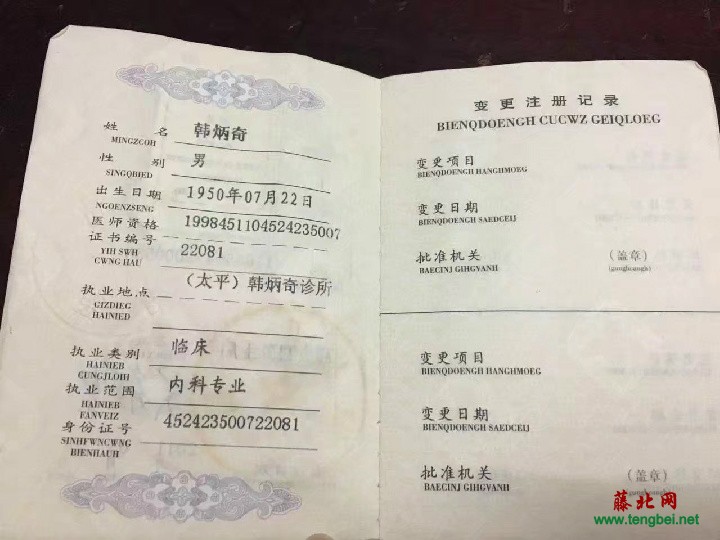 姓名 韩炳奇
MINGZCOH
性别 男
SINGQBIED
出生日期 1950年07月22日
NGOENZSENG
医师资格 1998451104524235007
证书编号 22081
YIH SWH
CWNG HAU
执业地点 (太平)韩炳奇诊所
GIZDIEG
HAINIED
执业类别 临床
HAINIEB
CUNGJLOIH
执业范围 内科专业
HAINIEB
FANVEIZ
身份证号 452423500722081
SINHFWNCWNG
BIENHAUH
变更注册记录
BIENQDOENGH CUCWZ GEIQLOEG
变更项目
BIENQDOENGH HANGHMOEG
变更日期
BIENQDOENGH SAEDGEIJ
批准机关 (盖章)
BAECINJ GIHGVANH (gaeghcangh)
变更项目
BIENQDOENGH HANGHMOEG
变更日期
BIENQDOENGH SAEDGEIJ
批准机关 (盖章)
BAECINJ GIHGVANH
藤北网
www.tengbei.net